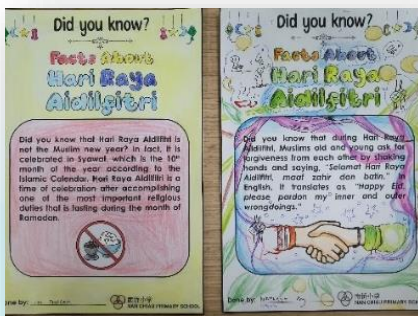 Did you know?
Facts About
Hari Raya
Aidilfitri
Did you know that Hari Raya Aidilfitri is
not the Muslim new year? In fact, it is
celebrated in Syawal which is the 10th
month of the year according to the
Islamic Calendar. Hari Raya Aidilfitri is a
time of celebration after accomplishing
one of the most important religious
duties that is fasting during the month of
Ramadan.
Done by:
南侨小学
NAN CHIAU PRIMARY SCHOOL
Did you know?
Facts About
Hari Raya
Aidilfitri
Did you know that during Hari Raya
Aidilfitri, Muslims old and young ask for
forgiveness from each other by shaking
hands and saying, "Selamat Hari Raya
Aidilfitri, maaf zahir dan batin." In
English, it translates as "Happy Eid,
please pardon my inner and outer
wrongdoings."
Done by:
南侨小学
NAN CHIAU PRIMARY SCHOOL